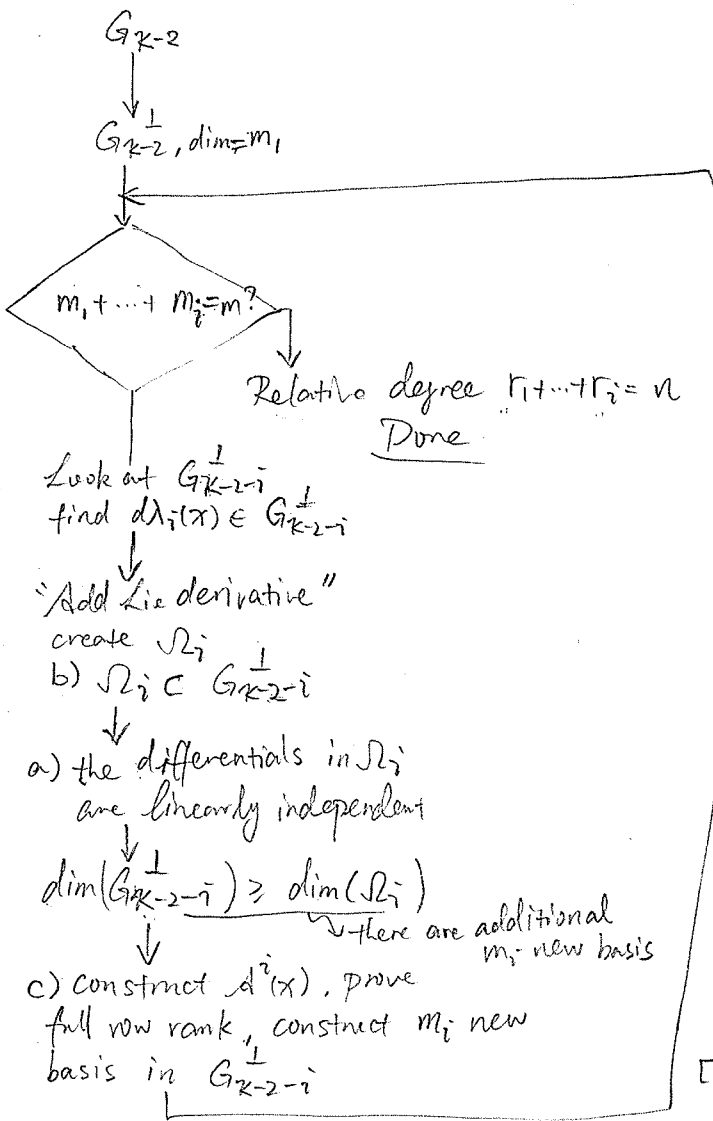 Gκ-2
G⊥κ-2, dim=m₁
m₁+...+ mᵢ=m?
Relative degree r₁+...+rᵢ= n
Done
Look at G⊥κ-2-i
find dλᵢ(x) ∈ G⊥κ-2-i
"Add Lie derivative"
create Ωᵢ
b) Ωᵢ ⊂ G⊥κ-2-i
a) the differentials in Ωᵢ
are linearly independent
dim(G⊥κ-2-i) ≥ dim(Ωᵢ)
there are additional
mᵢ new basis
c) construct Aⁱ(x), prove
full row rank, construct mᵢ new
basis in G⊥κ-2-i